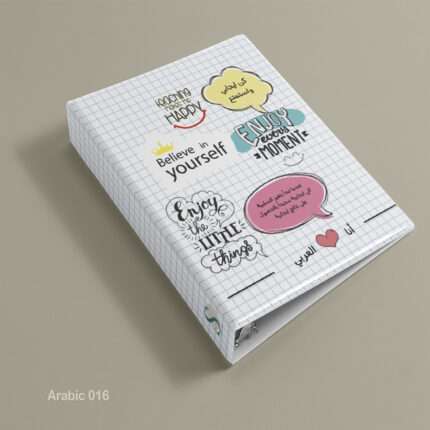 teaching
make me
HAPPY
كن ايجابي
واستمتع
Believe in
yourself
ENJOY
every
MOMENT
Enjoy
the
LITTLE
things
أنا
العربي
Arabic 016